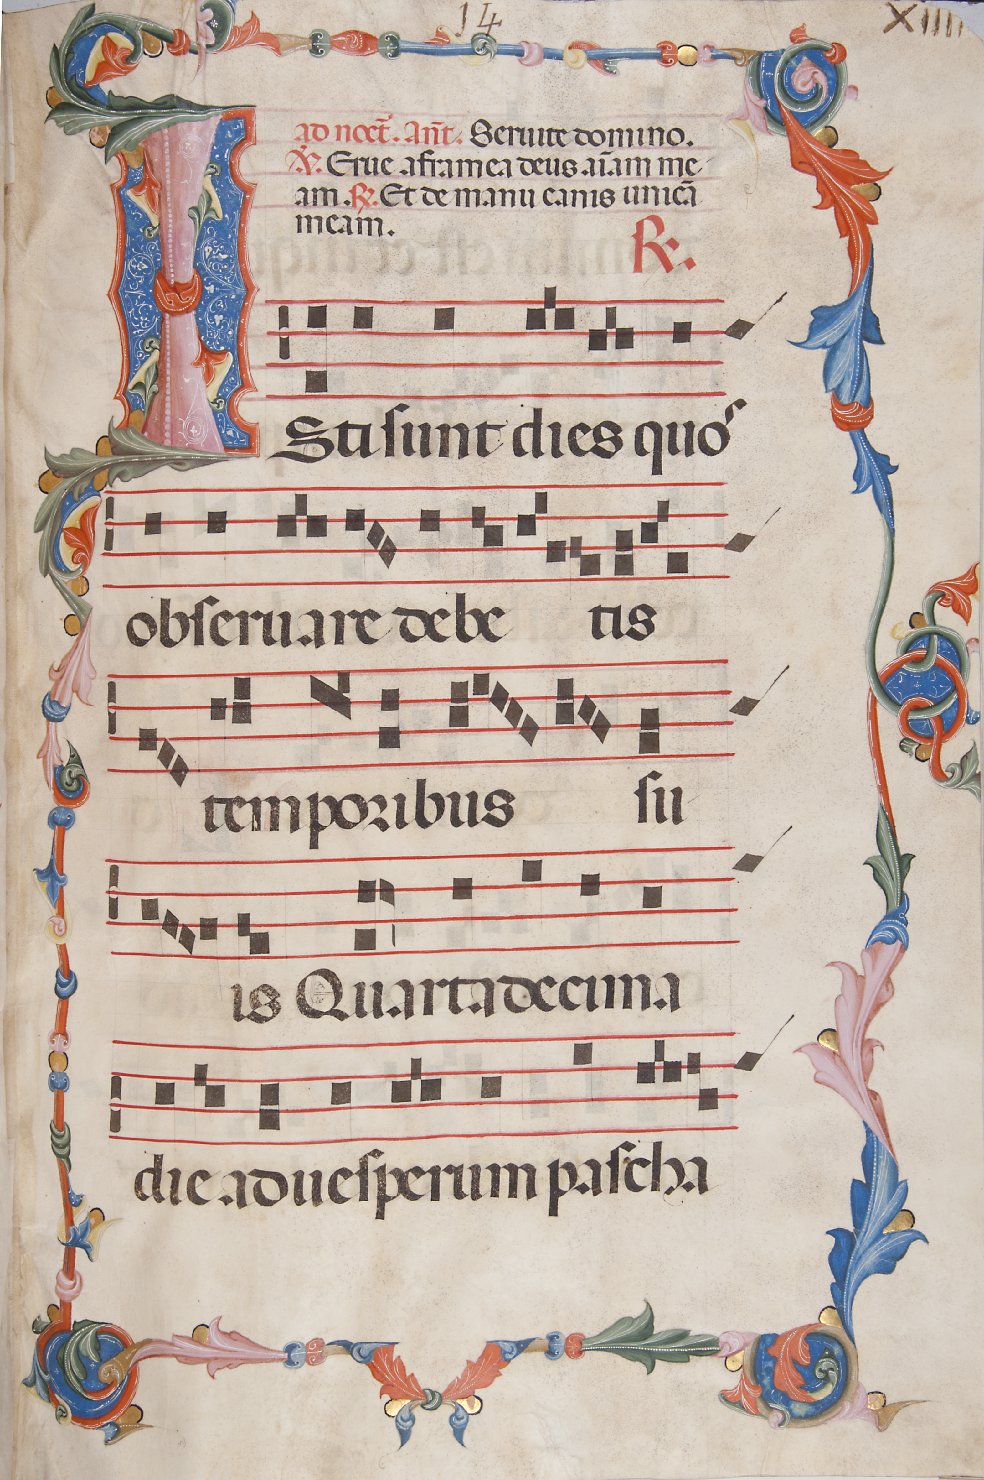 14
XIIII
ad noct̄. Ant̄. Seruite domino.
℣. Erue a framea deus aīam me-
am. ℟. Et de manu canis unicā
meam.
℟.
Isti sunt dies quos
obseruare debetis
temporibus su
is Quartadecima
die ad uesperum pascha